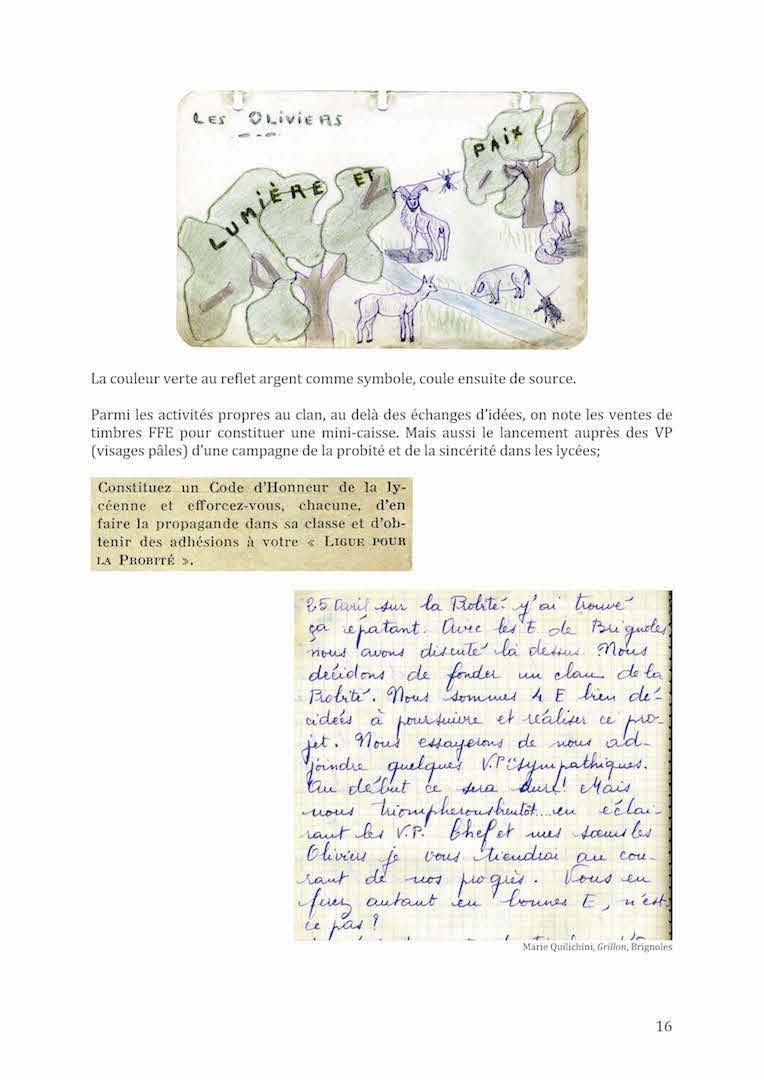 LES OLIVIERS
LUMIÈRE ET PAIX
La couleur verte au reflet argent comme symbole, coule ensuite de source.
Parmi les activités propres au clan, au delà des échanges d'idées, on note les ventes de
timbres FFE pour constituer une mini-caisse. Mais aussi le lancement auprès des VP
(visages pâles) d'une campagne de la probité et de la sincérité dans les lycées;
Constituez un Code d'Honneur de la ly-
céenne et efforcez-vous, chacune, d'en
faire la propagande dans sa classe et d'ob-
tenir des adhésions à votre « LIGUE POUR
LA PROBITÉ ».
25 Avril sur la Probité. y'ai trouvé
ça épatant. Avec les E de Brignoles
nous avons discuté là dessus. Nous
décidons de fonder un clan de la
Probité. Nous sommes 4 E bien dé-
cidées à poursuivre et réaliser ce pro-
jet. Nous essayerons de nous ad-
joindre quelques V.P. sympathiques.
Au début ce sera dure! Mais
nous triompherons bientôt... en éclai-
rant les V.P. Chef et mes sœurs les
Oliviers je vous tiendrai au cou-
rant de nos progrès. Vous en
ferez autant en bonnes E, n'est-
ce pas?
Marie Quilichini, Grillon, Brignoles
16